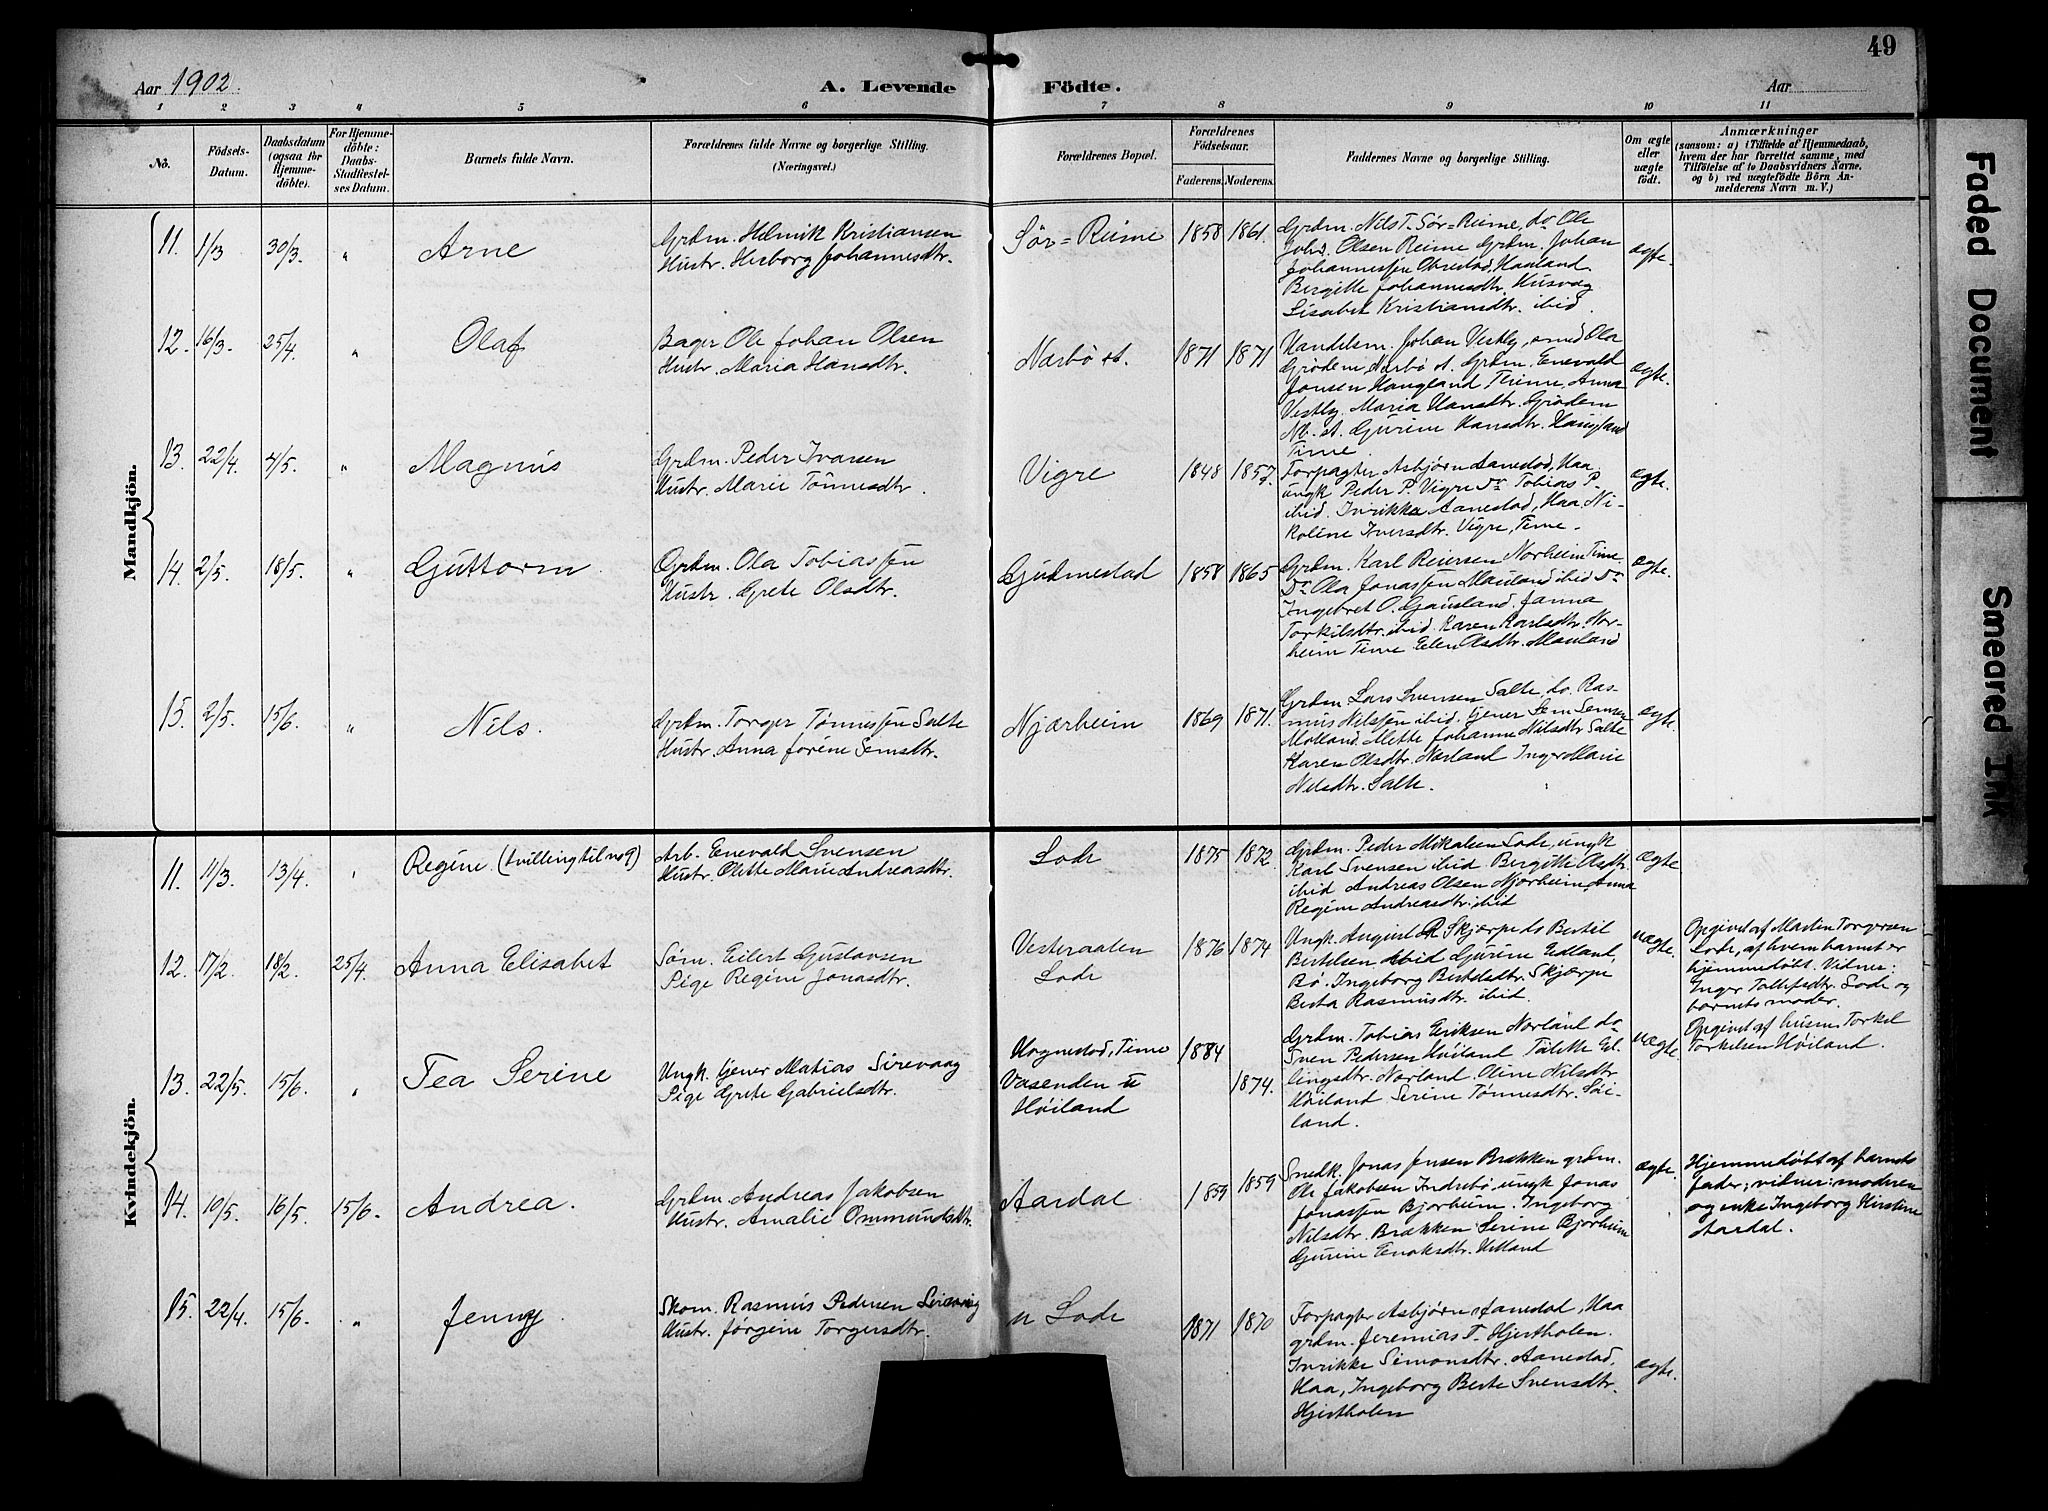 49
Aar 1902.
A. Levende Födte.
Aar
1 2 3 4 5 6 7 8 9 10 11
No.
Födsels-
Datum.
Daabsdatum
(ogsaa for
Hjemme-
döbte).
For Hjemme-
döbte:
Daabs-
Stadfæstel-
ses Datum.
Barnets fulde Navn.
Forældrenes fulde Navne og borgerlige Stilling.
(Næringsvei.)
Forældrenes Bopæl.
Forældrenes
Födselsaar.
Faderens. Moderens.
Faddernes Navne og borgerlige Stilling.
Om ægte
eller
uægte
födt.
Anmærkninger
(saasom: a) i Tilfælde af Hjemmedaab,
hvem der har forrettet samme, med
Tilföielse af to Daabsvidners Navne,
og b) ved uægtefödte Börn An-
melderens Navn m. V.)
Mandkjön.
11. 1/3 30/3. " Arne
Grdm. Helmik Kristiansen
Hustr. Herborg Johannesdtr.
Sør=Reime 1858 1861.
Grdm. Nils T. Sør=Reime, do Ole
Johs. Olsen Reime Grdm. Johan
Johannessen Obrestad, Haaland.
Bergitte Johannesdtr. Husvæg
Lisabet Kristiansdtr. ibid.
ægte.
12. 16/3. 25/4. " Olaf
Bager Ole Johan Olsen
Hustr. Maria Hansdtr.
Nærbø st. 1871 1871
Handelsm. Johan Vestly, smed Ola
Grødem, Nærbø st. Grdm. Enevald
Jonsen Haugland Time, Anna
Vestly. Maria Hansdtr. Grødem
Nb. st. Gurine Hansdtr. Haugland
Time.
ægte.
13. 22/4. 4/5. " Magnus
Grdm. Peder Ivarsen
Hustr. Marie Tønnesdtr.
Vigre 1848 1857.
Forpagter Asbjørn Aanestad, Haa
ungk Peder P. Vigre Do Tobias P.
ibid. Inrikka Aanestad, Haa, Ni-
koline Iversdtr. Vigre, Time.
ægte.
14. 2/5. 18/5. " Guttorm
Grdm. Ola Tobiassen
Hustr. Grete Olsdtr.
Gudmestad 1858 1865
Grdm. Karl Reiersen Norheim Time
Do Ola Jonassen Mauland ibid Do
Ingebret O. Gausland. Janna
Torkilsdtr. ibid. Karen Karlsdtr. Nor-
heim Time Elen Olsdtr. Mauland
ægte.
15. 2/5. 15/6. " Nils.
Grdm. Torger Tønnessen Salte
Hustr. Anna Jorine Semsdtr.
Njærheim 1869 1871.
Grdm Lars Svensen Salte, do. Ras-
mus Nilssen ibid. tjener Sem Semsen
Motland. Mette Johanne Nilsdtr Salte
Karen Olsdtr. Norland Inger Marie
Nilsdtr. Salte.
ægte.
Kvindekjön.
11. 11/3. 13/4. " Regine (tvilling til no 9)
Arb. Enevald Svensen
Hustr. Olette Marie Andreasdtr.
Lode 1875 1872
Grdm. Peder Mikalsen Lode, ungk
Karl Svensen ibid. Bergitte Olsdtr.
ibid Andreas Olsen Njærheim, Anna
Regine Andreasdtr. ibid
ægte
12. 17/2. 18/2. 25/4. Anna Elisabet
Søm. Eilert Gustavsen
Pige Regine Jonasdtr.
Vesteraalen
Lode
1876 1874
Ungk. August R Skjærpe ds Bertil
Bertelsen ibid Gurine Edland,
Bø. Ingeborg Bertelsdtr. Skjærpe
Berta Rasmusdtr. ibid.
uægte.
Opgivet af Martin Torgersen
Lode, af hvem barnet er
hjemmedøbt. Vidner:
Inger Tollefsdtr. Lode og
barnets moder.
13. 22/5. 15/6. " Tea Serine
Ungk. tjener Matias Sirevaag
Pige Grete Gabrielsdtr.
Hognestad, Time
Vasenden u
Høiland
1884 1874.
Grdm. Tobias Eriksen Norland do
Sven Pedersen Høiland Talette El-
lingsdtr. Norland. Oline Nilsdtr
Høiland Serine Tønnesdtr. Høi-
land.
uægte
Opgivet af husm. Torkel
Torkelsen Høiland.
14. 10/5. 16/5. 15/6. Andrea.
Grdm Andreas Jakobsen
Hustr. Amalie Ommundsdtr.
Aardal 1859 1859
Snedk. Jonas Jensen Brækken grdm.
Ole Jakobsen Indrebø, ungk Jonas
Jonassen Bjorheim. Ingeborg
Nilsdtr. Brækken. Serine Bjorheim
Gurine Enoksdtr. Hetland
ægte.
Hjemmedøbt af barnets
fader; vidner: moderen
og enke Ingeborg Kirstine
Aardal.
15. 22/4. 15/6. " Jenny
Skom. Rasmus Pedersen Sirevaag
Hustr. Jørgine Torgersdtr.
u Lode 1871 1870
Forpagter Asbjørn Aanestad, Haa
grdm. Jeremias T. Hjertholen.
Inrikke Simonsdtr. Aanestad,
Haa, Ingeborg Berte Svensdtr.
Hjertholen
ægte.
Faded Document
Smeared Ink